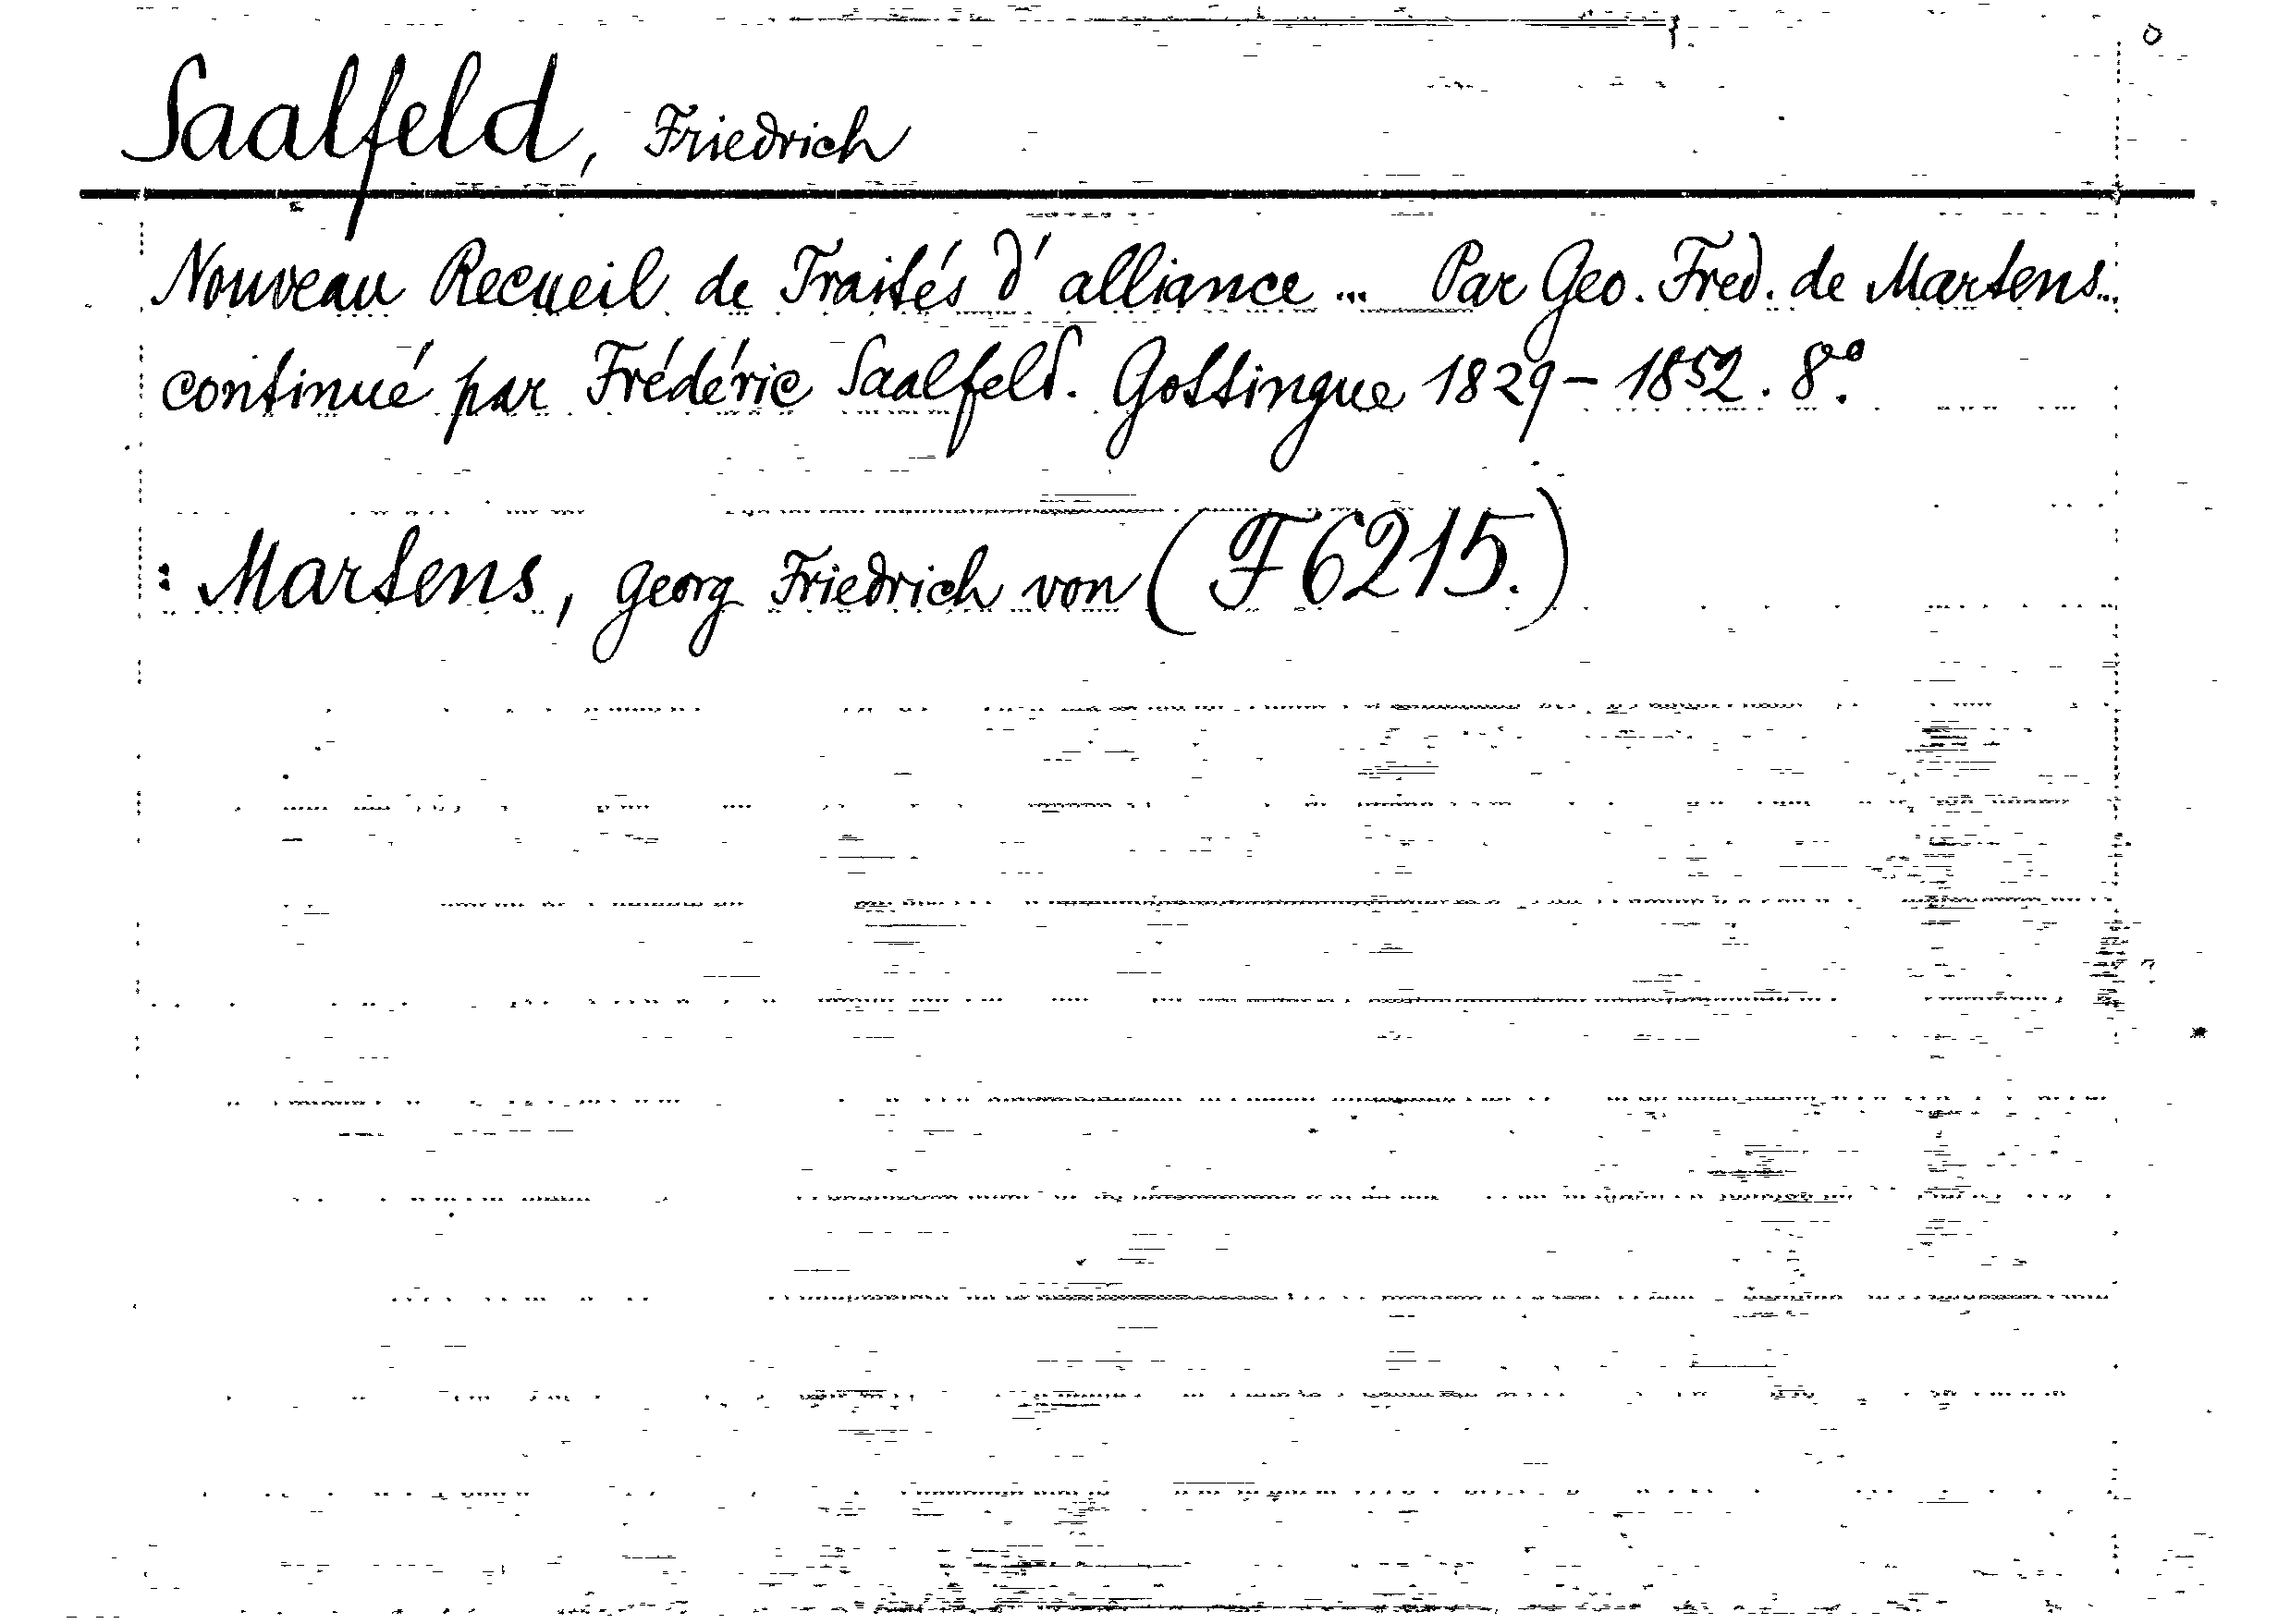 Saalfeld, Friedrich
Nouveau Recueil de Traités d'alliance ... Par Geo. Fred. de Martens...
continué par Frédéric Saalfeld. Gottingue 1829-1852. 8°.
: Martens, Georg Friedrich von (F 6215.)